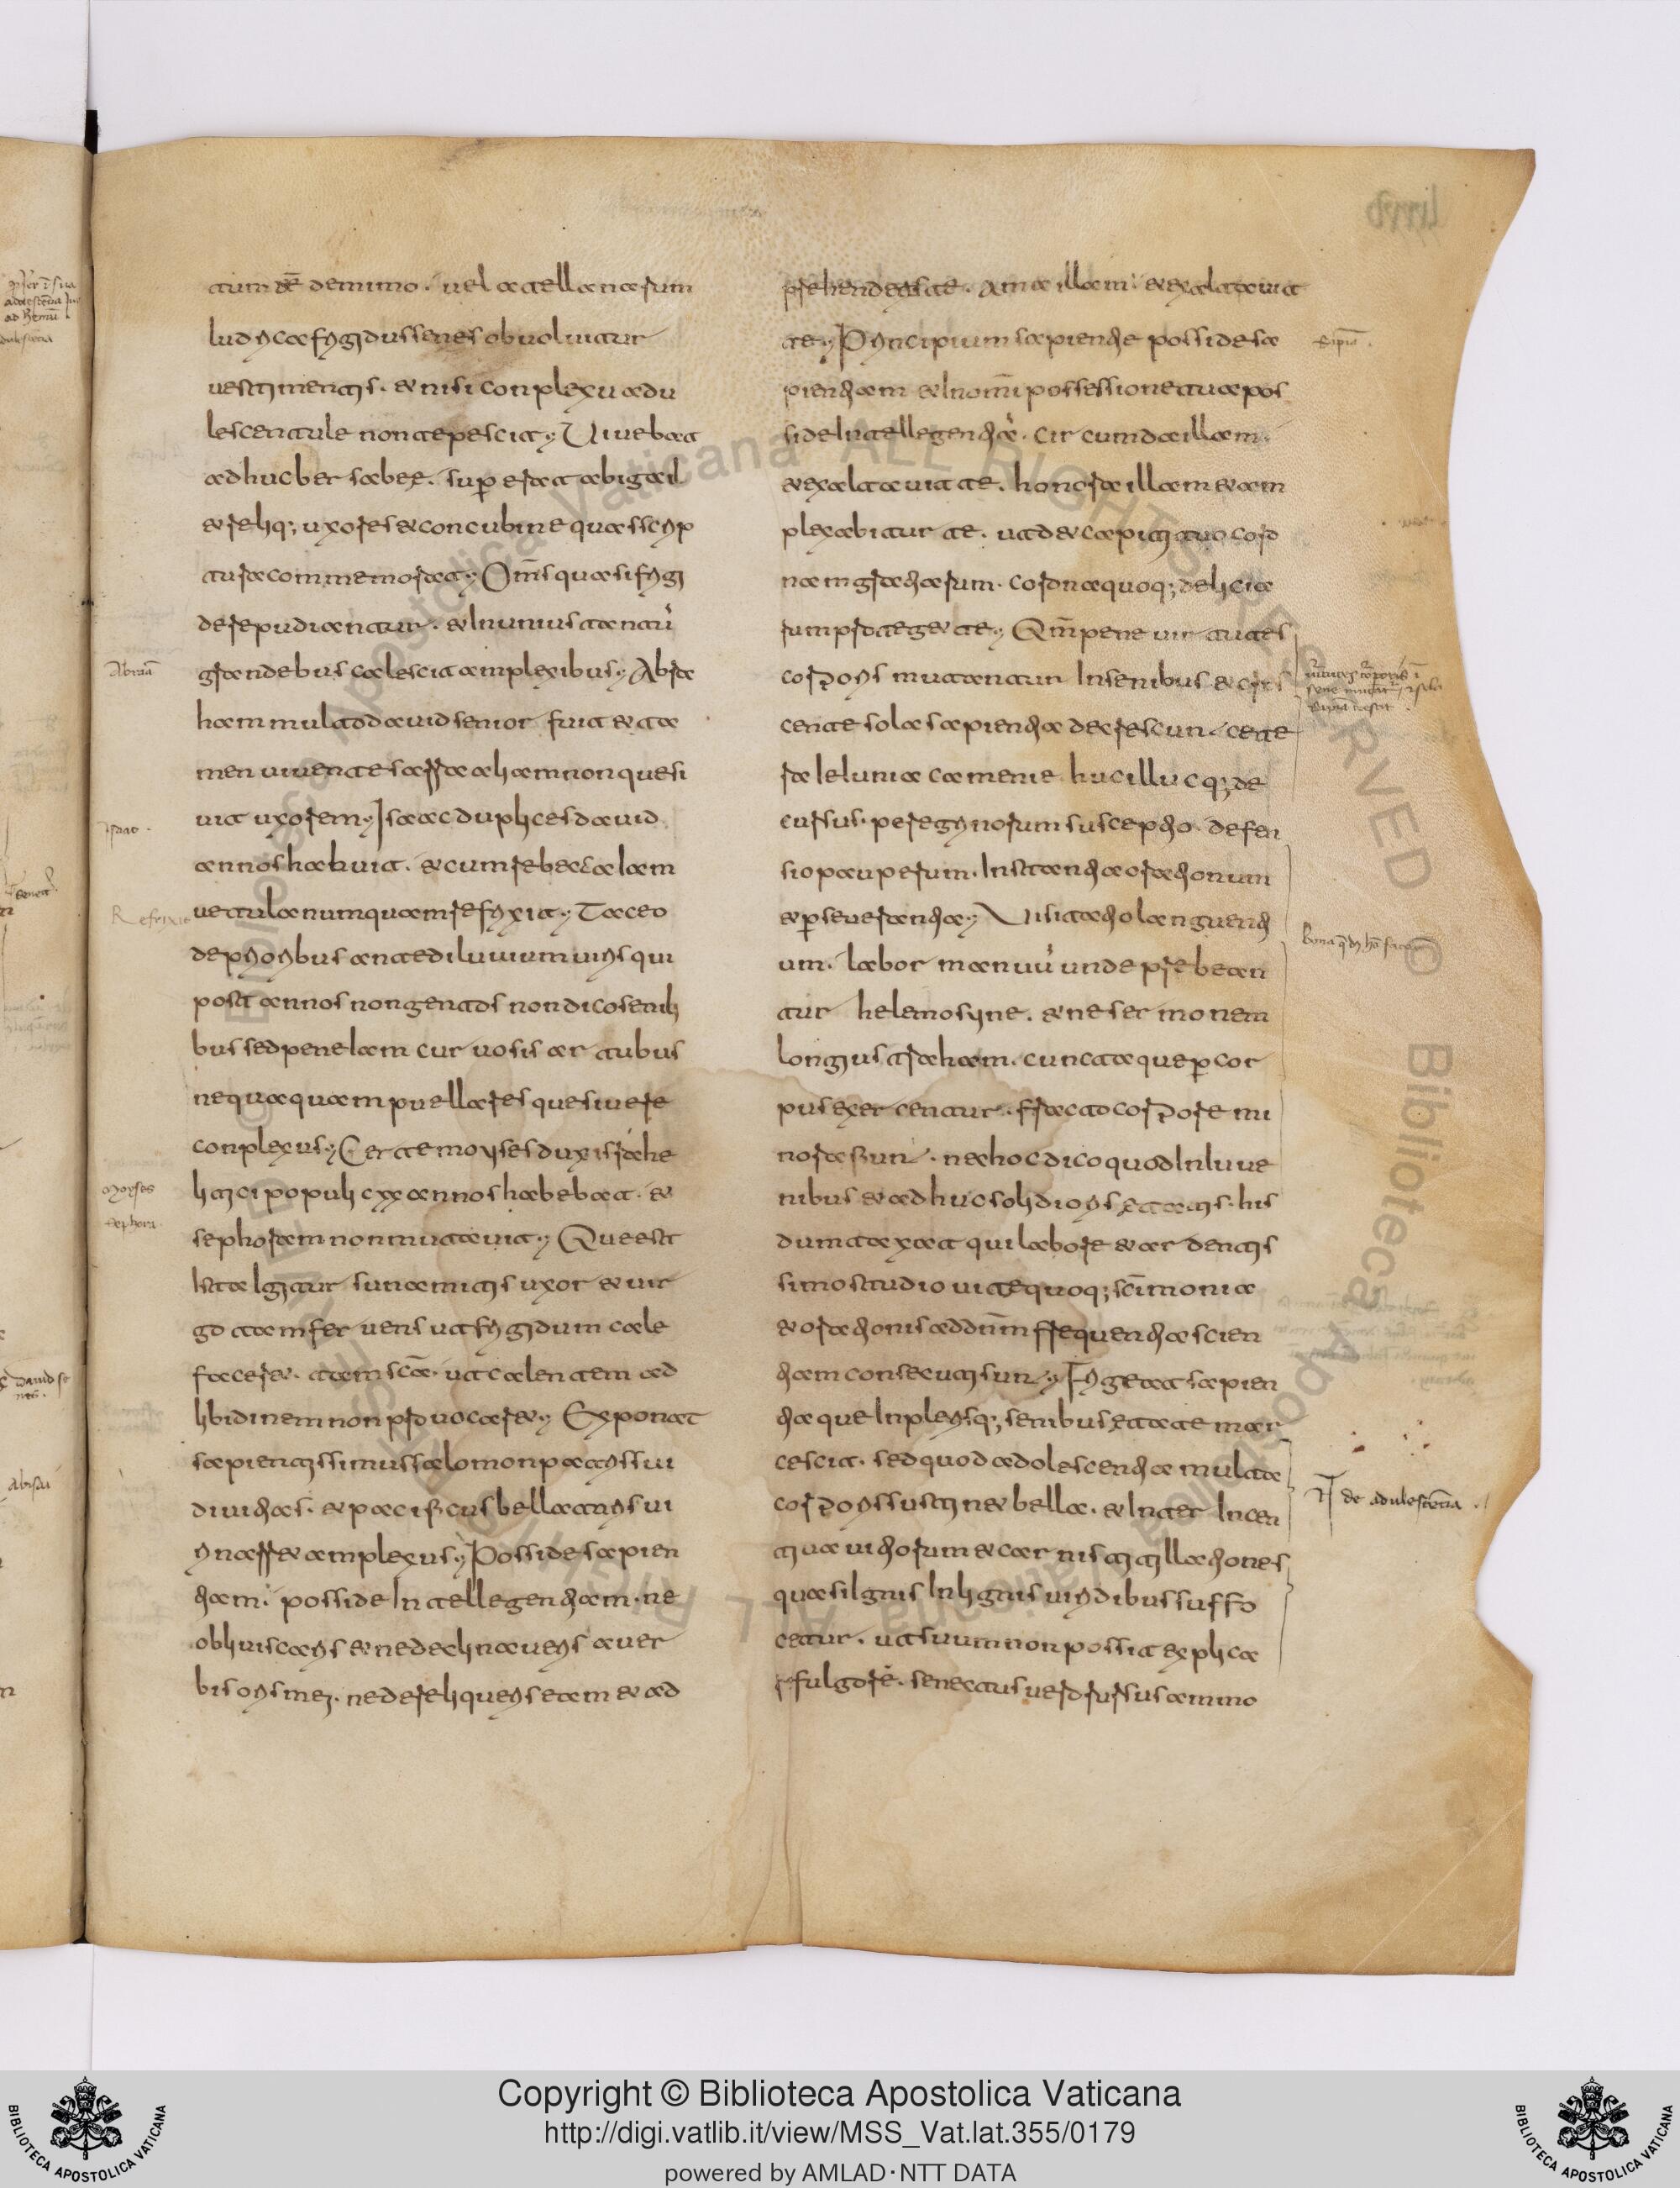 tum de̅ demimo. vel atellanarum
ludicra frigidus senex obvolvitur
vestimentis. et nisi conplexu adu
lescentule non tepescit. Vivebat
adhuc bersabee. supererat abigail
et reliq; uxores et concubine quas scrip
tura commemorat. Om̅s quasi frigi
de repudiantur. et In unius tantu̅
grandebus calescit amplexibus. Abra
ham multo david senior fuit et ta
men vivente sarra aliam non quesi
vit uxorem. Isaac duplices david
annos habuit. et cum rebecca lam
vetula numquam refrixit. Taceo
de prioribus ante diluvium viris qui
post annos nongentos non dico senili
bus sed pene lam cur uosis artubus
nequaquam puellares quesivere
conplexus. Certe moyses dux israhe
litici populi cxx annos habebat. et
sephoram non mutavit. Que est
Ista Igitur sunamitis uxor et vir
go tam fervens ut frigidum cale
faceret. tam sc̅a. ut calentem ad
libidinem non provocaret. Exponat
sapientissimus salomon patris sui
divitias. et pacificus bellatoris vi
ri narret amplexus. Posside sapien
tiam. posside Intellegentiam. ne
obliviscaris et ne declinaveris a ver
bis oris mei. ne dereliqueris eam et ad
prehendet te. Ama illam. et exaltavit
te. Principium sapientie posside sa
pientiam et In omi̅ possessione tua pos
side Intellegentia̅. circumda illam.
et exaltavit te. honora illam et am
plexabitur te. ut det capiti tuo coro
nam gratiarum. corona quoq; delicia
rum protegat te. Om̅s pene virtutes
corporis mutantur In senibus et cres
cente sola sapientia decrescunt cete
ra Ieiunia cameunie huc illucq; de
cursus. peregrinorum susceptio. defen
sio pauperum. Instantia orationum
et p̱severantia. Visitatio languenti
um. labor manuu̅ unde prebean
tur helemosyne. et ne sermonem
longius traham. cuncta que p̱ cor
pus exercentur. fracto corpore mi
nora sunt. nec hoc dico quod In Iuve
nibus et adhuc solidioris etatis. his
dumtaxat qui labore et ardentis
simo studio vite quoq; sc̅imonia
et orationis ad dn̅m frequentia scien
tiam consecuti sunt. Frigeat sapien
tia que In plerisq; senibus etate mar
cescit. sed quod adolescentia multa
corporis sustinet bella. et Inter Incen
tiva vitiorum et carnis titillationes
quasi Ignis In lignis viridibus suffo
cetur. ut suum non possit explica
re fulgore̅. senectus vero rursus ammo
Abraa̅
Isaac.
Refrixit
Moyses
Sephora.
Sapia̅.
Ir̅ de adulescentia.
Copyright © Biblioteca Apostolica Vaticana
http://digi.vatlib.it/view/MSS_Vat.lat.355/0179
powered by AMLAD·NTT DATA
BIBLIOTECA APOSTOLICA VATICANA
BIBLIOTECA APOSTOLICA VATICANA